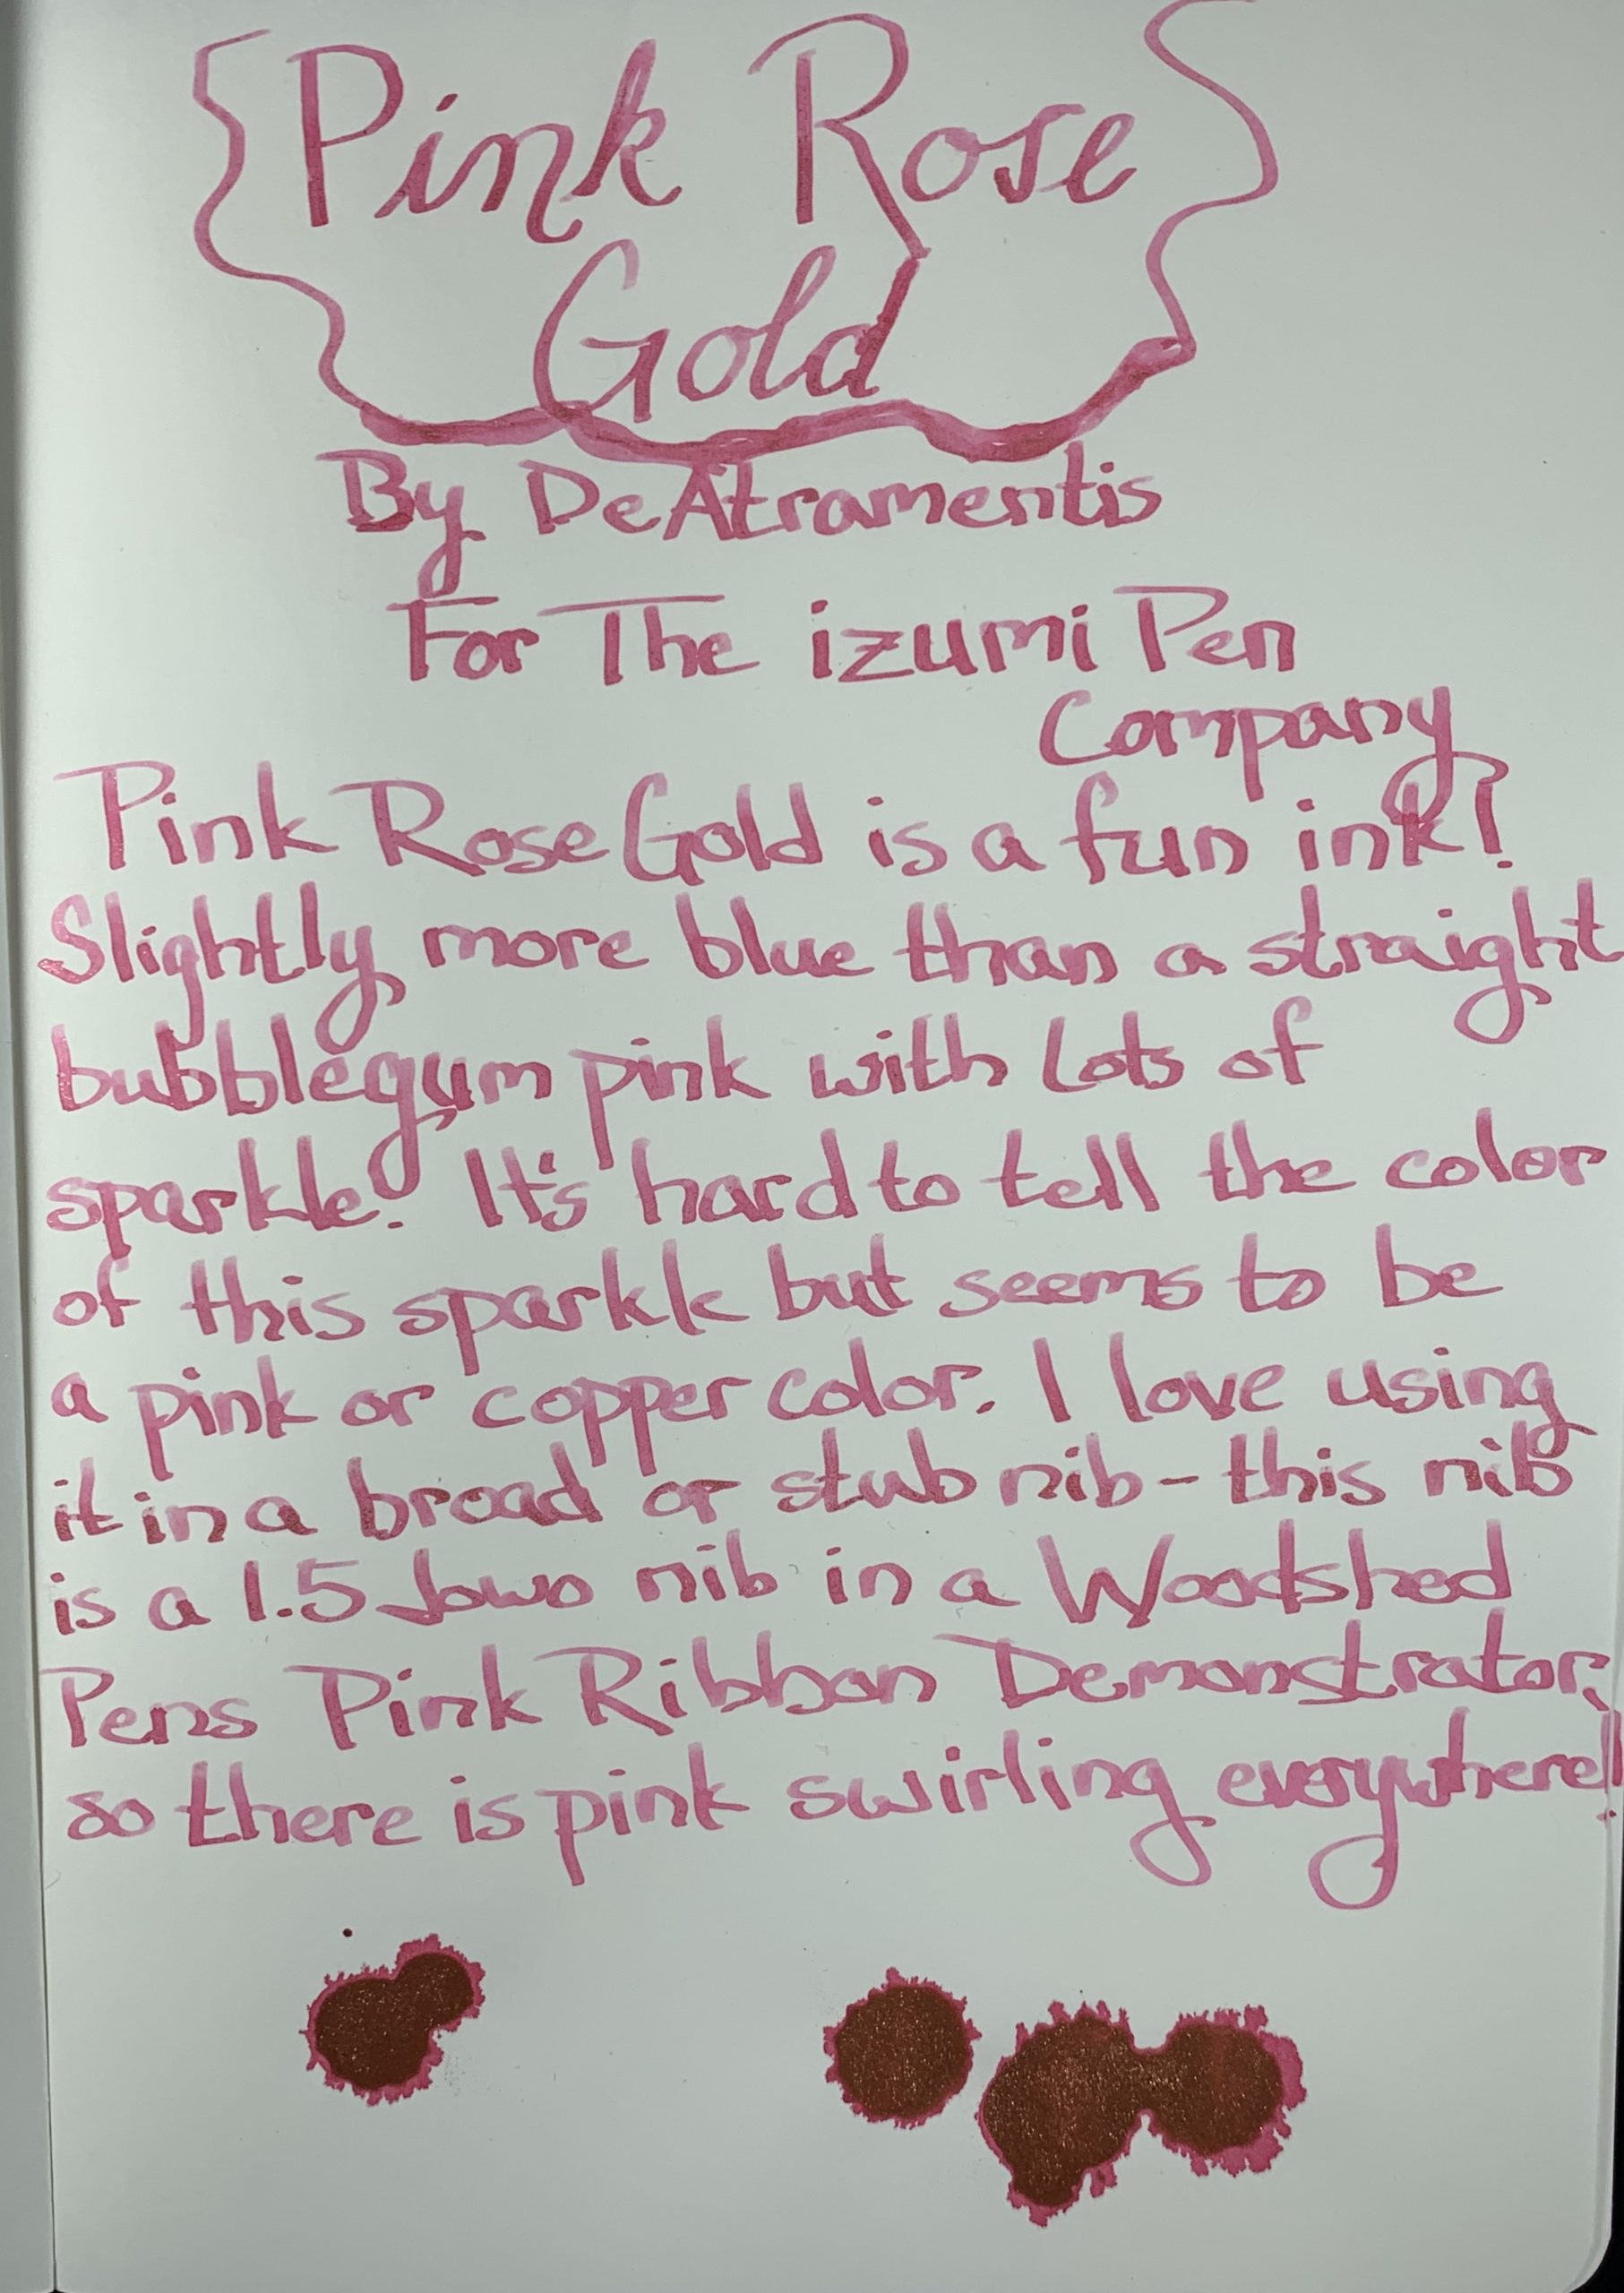 Pink Rose
Gold
By DeAtramentis
For The izumi Pen
Company
Pink Rose Gold is a fun ink!
Slightly more blue than a straight
bubblegum pink with lots of
sparkle! It's hard to tell the color
of this sparkle but seems to be
a pink or copper color. I love using
it in a broad or stub nib - this nib
is a 1.5 Jowo nib in a Woodshed
Pens Pink Ribbon Demonstrator,
so there is pink swirling everywhere!